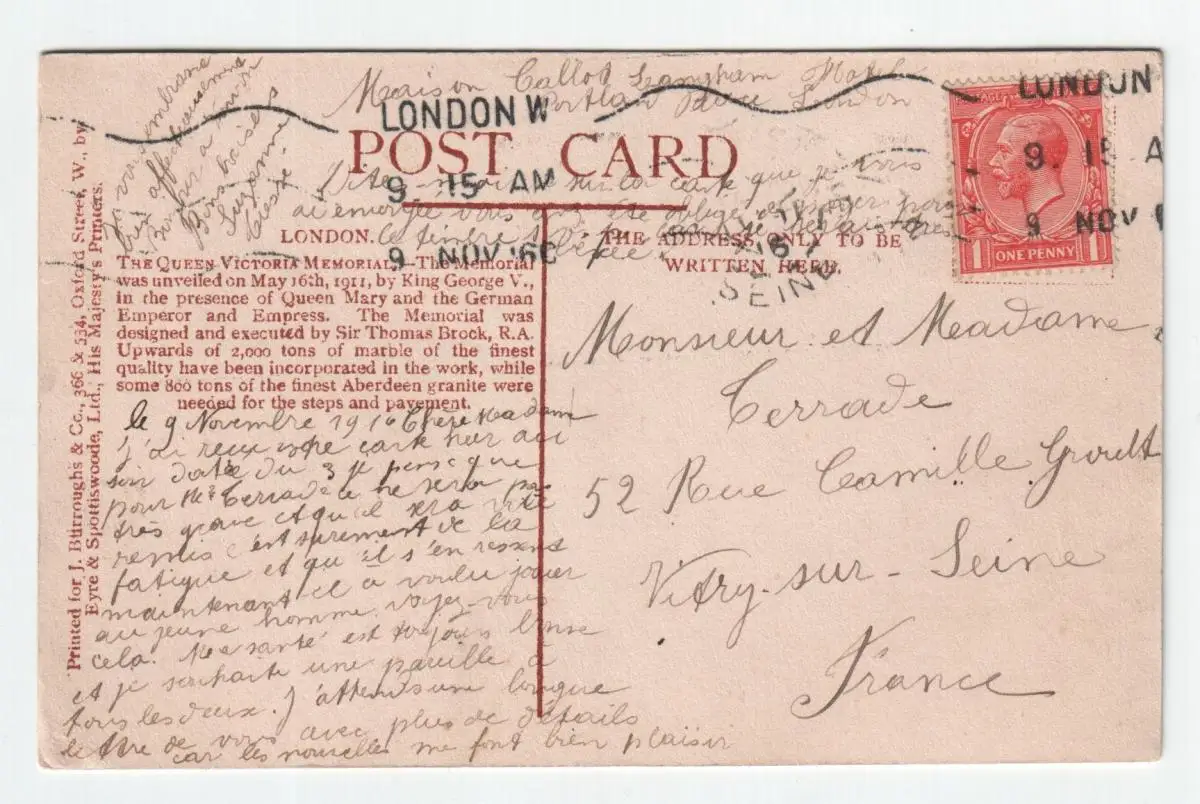 Maison Callot Langham Hotel
Portland Place London
LONDON W
9. 15 AM
9 NOV 16
LONDON
9. 15 A
9 NOV
POST CARD
Dites moi sur la carte que je vous
ai envoyée vous avez été obligés de payer pour
le timbre
POSTAGE
ONE PENNY
1 1
16
SEINE
Je vous embrasse
très affectueusement
Bonjour à
Bons baisers
Suzanne
Printed for J. Burroughs & Co., 366 & 534, Oxford Street, W., by
Eyre & Spottiswoode, Ltd., His Majesty's Printers.
LONDON.
THE QUEEN VICTORIA MEMORIAL.—The Memorial
was unveiled on May 16th, 1911, by King George V.,
in the presence of Queen Mary and the German
Emperor and Empress. The Memorial was
designed and executed by Sir Thomas Brock, R.A.
Upwards of 2,000 tons of marble of the finest
quality have been incorporated in the work, while
some 800 tons of the finest Aberdeen granite were
needed for the steps and pavement.
THE ADDRESS ONLY TO BE
WRITTEN HERE.
le 9 Novembre 1916 Chere Madame
j'ai reçu votre carte hier au
soir datée du 3 je pense que
pour Mr Terrade ce ne sera pas
très grave et qu'il sera vite
remis c'est surement de la
fatigue et qu'il s'en ressent
maintenant il a voulu jouer
au jeune homme voyez-vous
cela. Ma santé est toujours bonne
et je souhaite une pareille à
tous les deux. J'attends une longue
lettre de vous avec plus de détails
car les nouvelles me font bien plaisir
Monsieur et Madame
Terrade
52 Rue Camille Groult
Vitry-sur-Seine
France